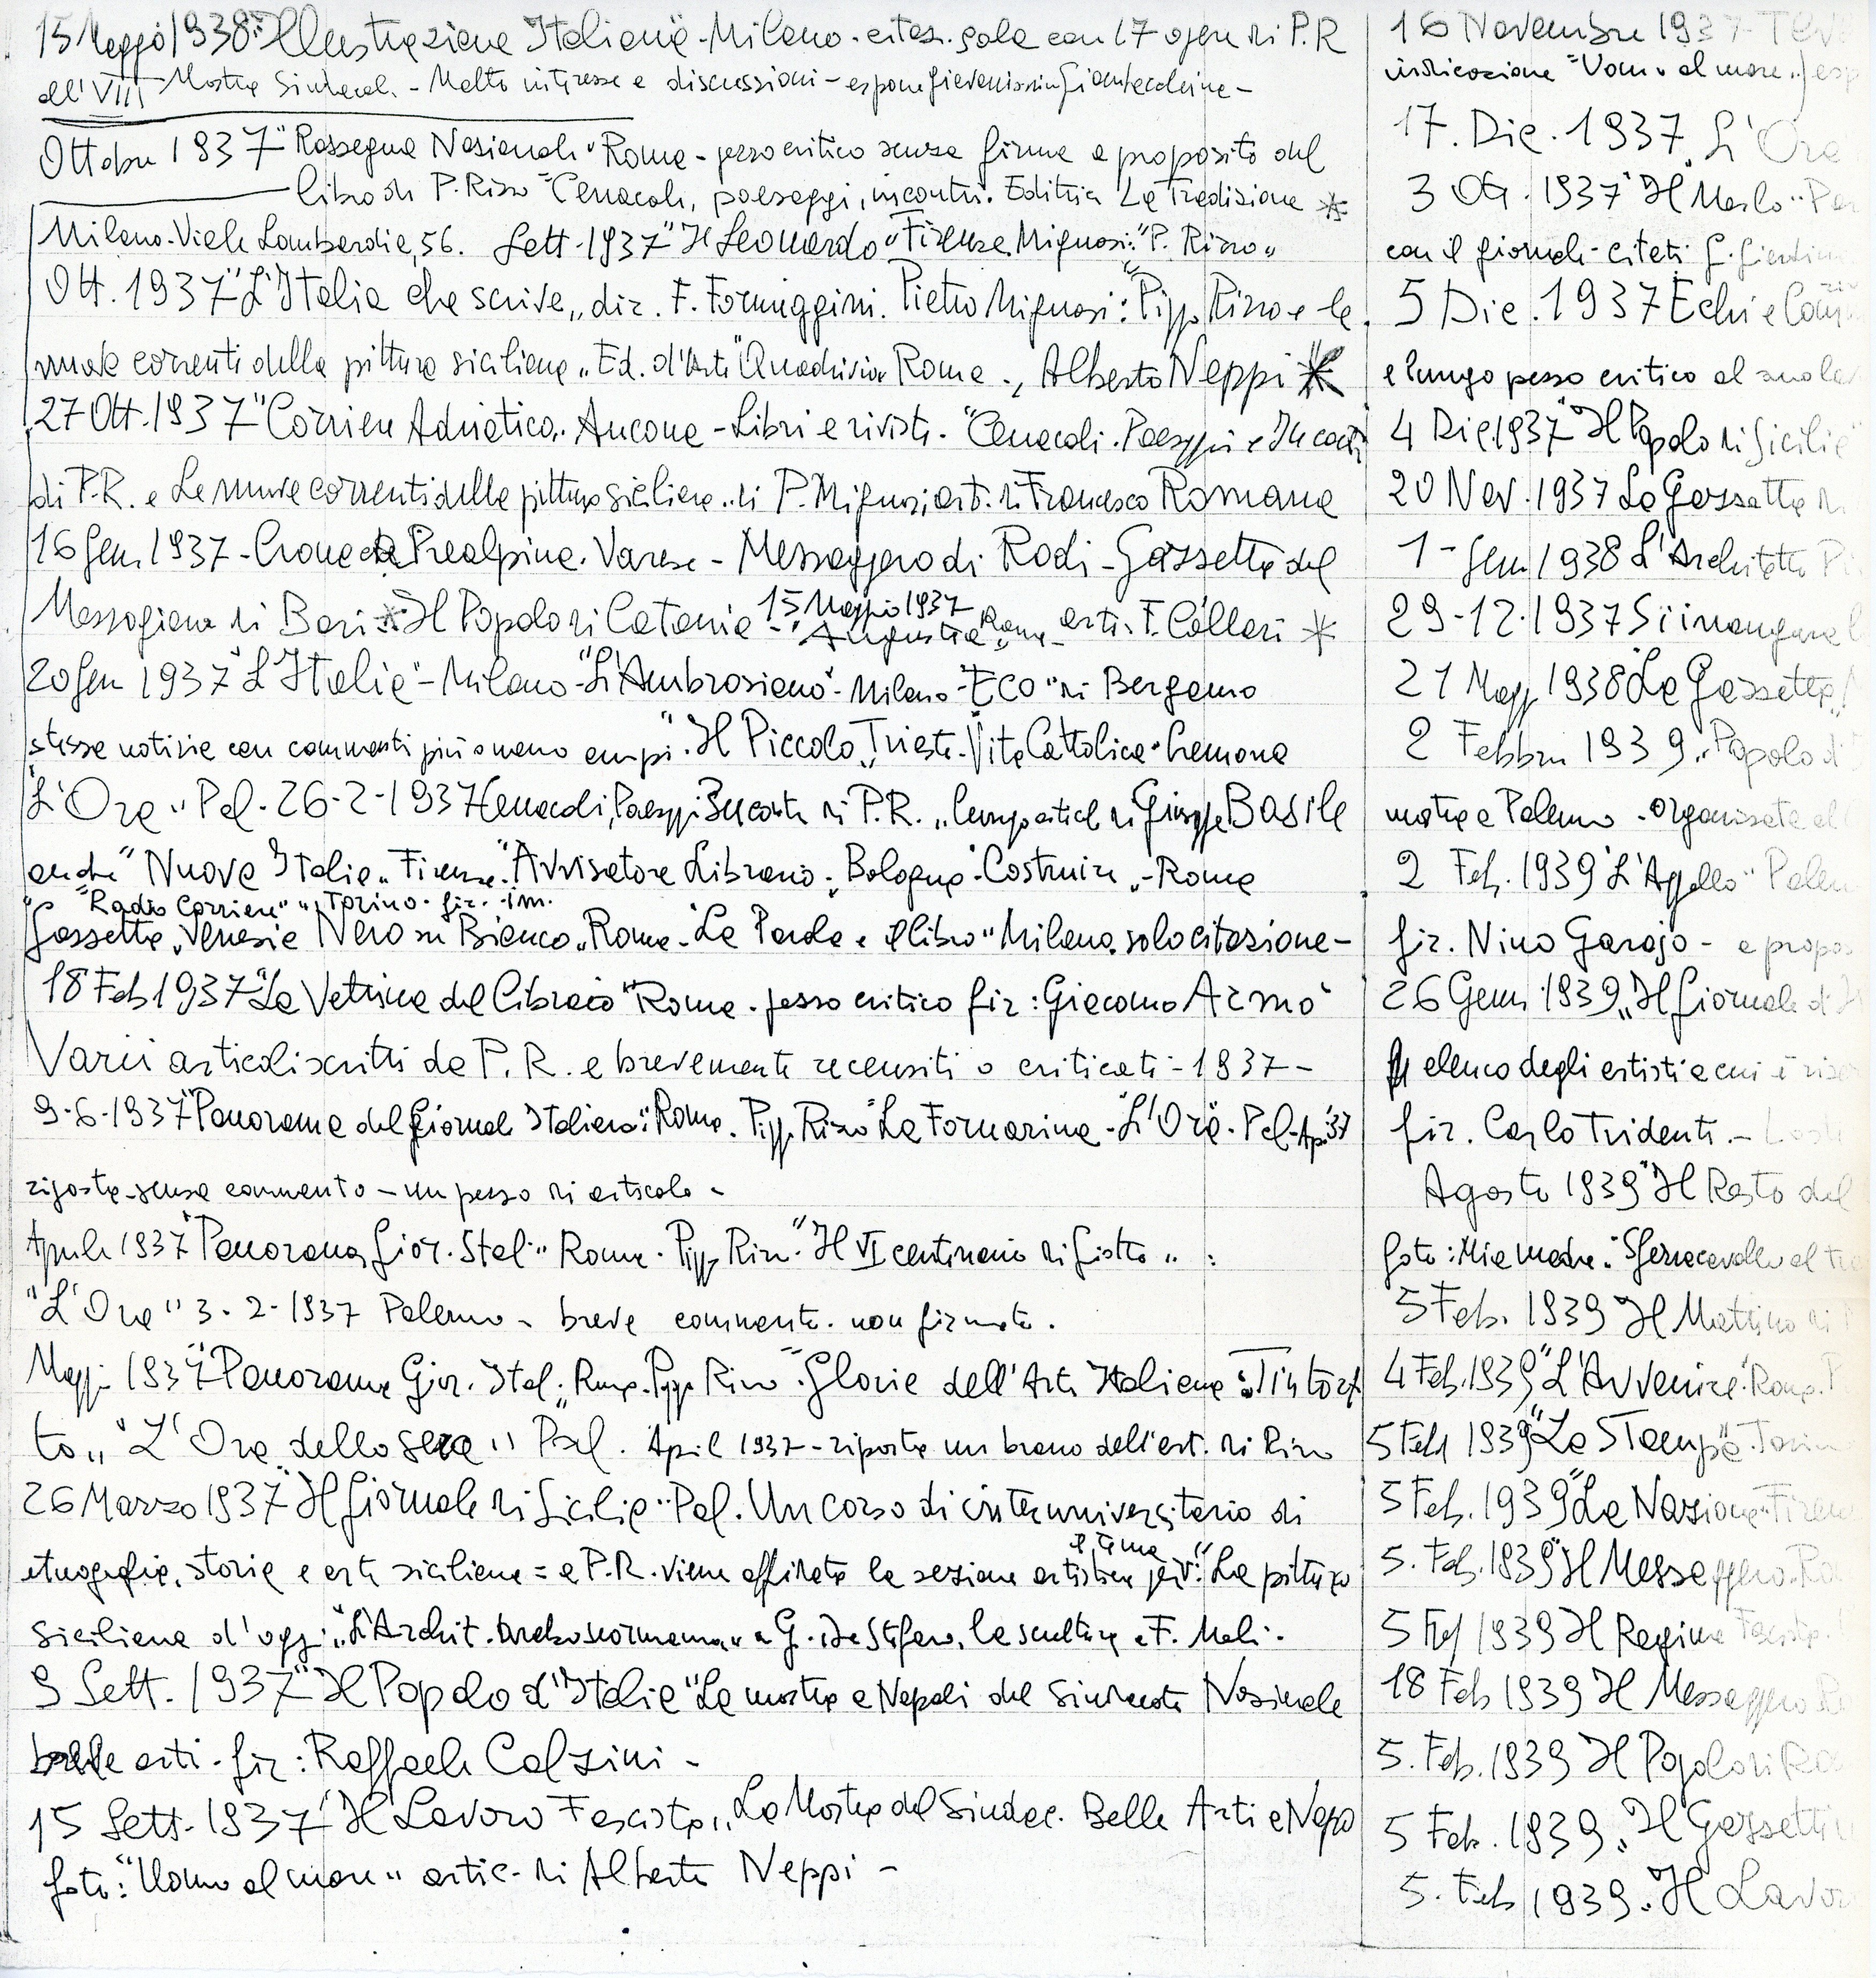 15 Maggio 1938 "Illustrazione Italiana" - Milano - citaz. sala con 17 opere di P.R
all'VIII Mostra Sindacal. - Molto interesse e discussioni - espone
Ottobre 1937 "Rassegna Nazionale" Roma - pezzo critico senza firma a proposito del
libro di P. Rizzo "Cenacoli, paesaggi, incontri. Editrice La Tradizione *
Milano - Viale Lombardia, 56. Sett. 1937 "Il Leonardo" Firenze. Mignosi: "P. Rizzo"
Ott. 1937 "L'Italia che scrive" dir. F. Formiggini. Pietro Mignosi: "Pippo Rizzo e le
nuove correnti della pittura siciliana" Ed. d'Arte "Quadrivio" Roma., Alberto Neppi *
27 Ott. 1937 "Corriere Adriatico" Ancona - Libri e riviste - "Cenacoli. Paesaggi e Incontri
di P.R. e Le nuove correnti della pittura siciliana" di P. Mignosi, art. di Francesco Romana
16 Gen. 1937 - Cronaca Prealpina. Varese - Messaggero di Rodi - Gazzetta del
Mezzogiorno di Bari * Il Popolo di Catania - 15 Maggio 1937
"Augustea" Roma - art. F. Cállari *
20 Gen 1937 "L'Italia" - Milano - "L'Ambrosiano" - Milano - "Eco" di Bergamo
stesse notizie con commenti più o meno ampi. "Il Piccolo" Trieste. Vita Cattolica - Cremona
"L'Ora" Pal. 26-2-1937 Cenacoli, Paesaggi Incontri di P.R. " lungo articol. di Giuseppe Basile
anche "Nuova Italia" Firenze. "Avvisatore Librario" Bologna - Costruire" - Roma
"Radio Corriere" Torino. fir. i.m.
Gazzetta Venezia Nero su Bianco" Roma - La Parola e il libro" Milano solo citazione -
18 Feb 1937 "La Vetrina del Libraio" Roma - pezzo critico fir: Giacomo Armò
Varii articoli scritti da P.R. e brevemente recensiti o criticati - 1937 -
9-6-1937 "Panorama del Giornale Italiano": Roma. Pipp. Rizzo "La Fornarina - "L'Ora" - Pal - Ap. '37
riporta senza commento - un pezzo di articolo -
Aprile 1937 "Panorama Gior. Ital" Roma. Pipp. Rizzo. "Il VI centenario di Giotto" :
"L'Ora" 3-2-1937 Palermo - breve commento non firmato.
Magg. 1937 "Panorama Gior. Ital: Roma. Pippo Rizzo - "Glorie dell'Arte Italiana: Tintoret
to" "L'Ora della sera" Pal. April 1937 - riporta un brano dell'art. di Rizzo
26 Marzo 1937 "Il Giornale di Sicilia" Pal. Un corso di interuniversitario di
etnografia, storia e arte siciliana = a P.R. viene affidata la sezione artistica il tema per: "La pittura
siciliana d'oggi" "L'Archit. araboseormanna" a G. di Stefano, la scultura a F. Meli.
9 Sett. 1937 "Il Popolo d'Italia" La mostra a Napoli del Sindacato Nazionale
belle arti - fir: Raffaele Calzini -
15 Sett. 1937 "Il Lavoro Fascista" La Mostra del Sindac. Belle Arti a Napo
foto: "Uomo al mare" artic. di Alberto Neppi -
16 Novembre 1937 -
indicazione "Uomo al mare"
17. Dic. 1937. L'Ora
3 Ott. 1937 "Il Merlo"
con il giornale - citati
5 Dic. 1937 Echi e
e lungo pezzo critico al
4 Dic. 1937 "Il Popolo di Sicilia"
20 Nov. 1937 La Gazzetta
1 - Gen. 1938 L'Architetto
29-12-1937 Si inaugura
21 Magg. 1938 "La Gazzetta
2 Febbra 1939. "Popolo di
mostra a Palermo - Organizzata al
2 Feb. 1939 L'Appello"
fir. Nino Garajo - a propos
26 Genn. 1939, "Il Giornale d'
elenco degli artisti a cui è
fir. Carlo Tridenti. -
Agosto 1939 "Il Resto del
foto: Mia madre. "Sferracavallo al
5 Feb. 1939 Il Mattino di
4 Feb. 1939 "L'Avvenire" Roma.
5 Feb 1939 "La Stampa" Torin
5 Feb. 1939 "La Nazione" Firen
5. Feb. 1939 "Il Messaggero. Ro
5 Feb 1939 Il Regime Fascista.
18 Feb 1939 Il Messaggero
5. Feb. 1939 Il Popolo di
5 Feb. 1939. "Il Gazzetti
5. Feb 1939. Il Lavor